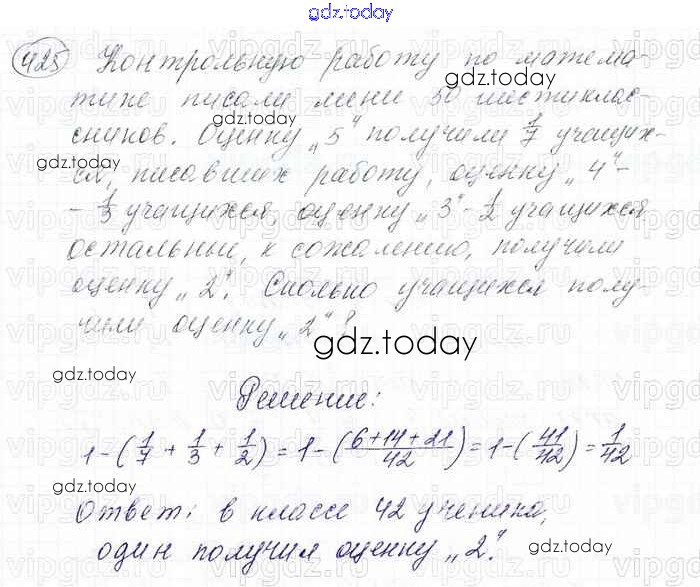 gdz.today
425 Контрольную работу по матема-
тике писали мени 50 шестиклас-
сников. Оценку „5" получили 1/7 учащих-
gdz.today
ся, писавших работу, оценку „4"-
- 1/3 учащихся, оценку „3"- 1/2 учащихся
остальные, к сожалению, получили
оценку „2". Сколько учащихся полу-
чили оценку „2"?
gdz.today
gdz.today
Решение:
1-(1/7 + 1/3 + 1/2) = 1-((6+14+21)/42) = 1-(41/42) = 1/42
gdz.today
Ответ: в классе 42 ученика,
один получил оценку „2".
gdz.today